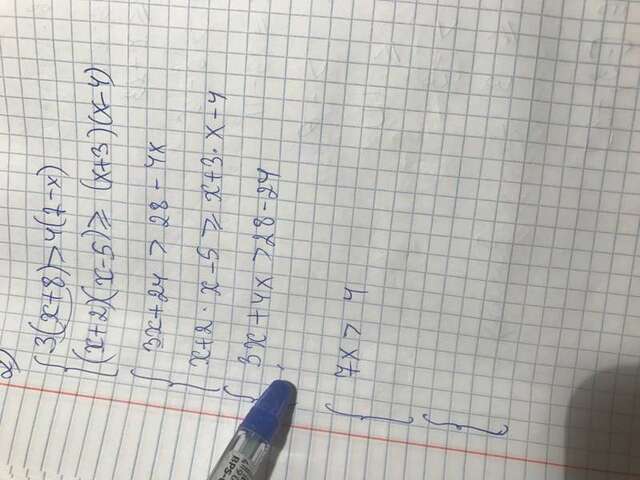 2)
3(x+8)>4(7-x)
(x+2)(x-5)≥ (x+3)(x-4)
3x+24 > 28-4x
x+2 · x-5 ≥ x+3 · x-4
3x+4x >28-24
7x > 4